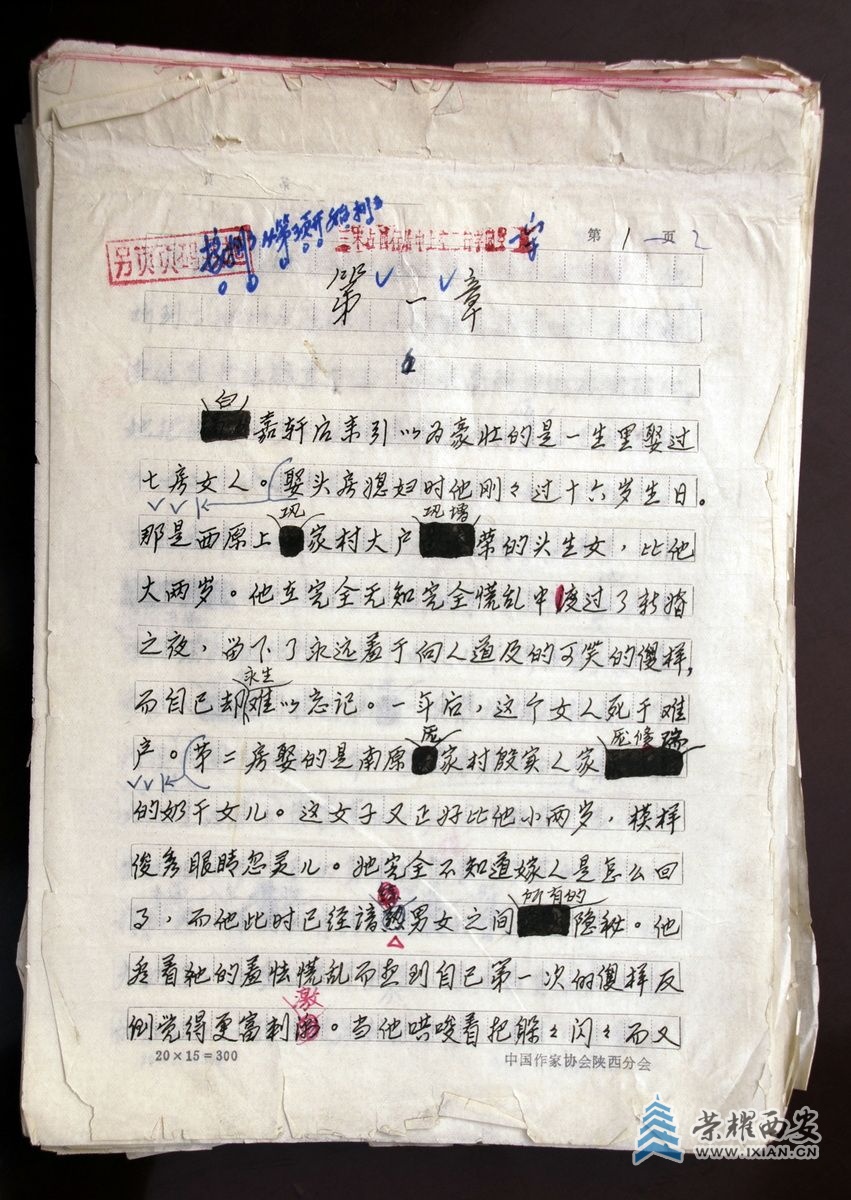 另页
第1页 2
第一章
白嘉轩后来引以为豪壮的是一生里娶过
七房女人。娶头房媳妇时他刚刚过十六岁生日。
那是西原上巩家村大户巩增荣的头生女，比他
大两岁。他在完全无知完全慌乱中度过了新婚
之夜，留下了永远羞于向人道及的可笑的傻样，
而自己却永生难以忘记。一年后，这个女人死于难
产。第二房娶的是南原庞家村殷实人家庞修瑞
的奶干女儿。这女子又正好比他小两岁，模样
俊秀眼睛忽灵儿。她完全不知道嫁人是怎么回
事，而他此时已经谙熟男女之间所有的隐秘。他
看着她的羞怯慌乱而想到自己第一次的傻样反
倒觉得更富刺激。当他哄唆着把躲躲闪闪而又
20×15=300
中国作家协会陕西分会
荣耀西安
WWW.IXIAN.CN